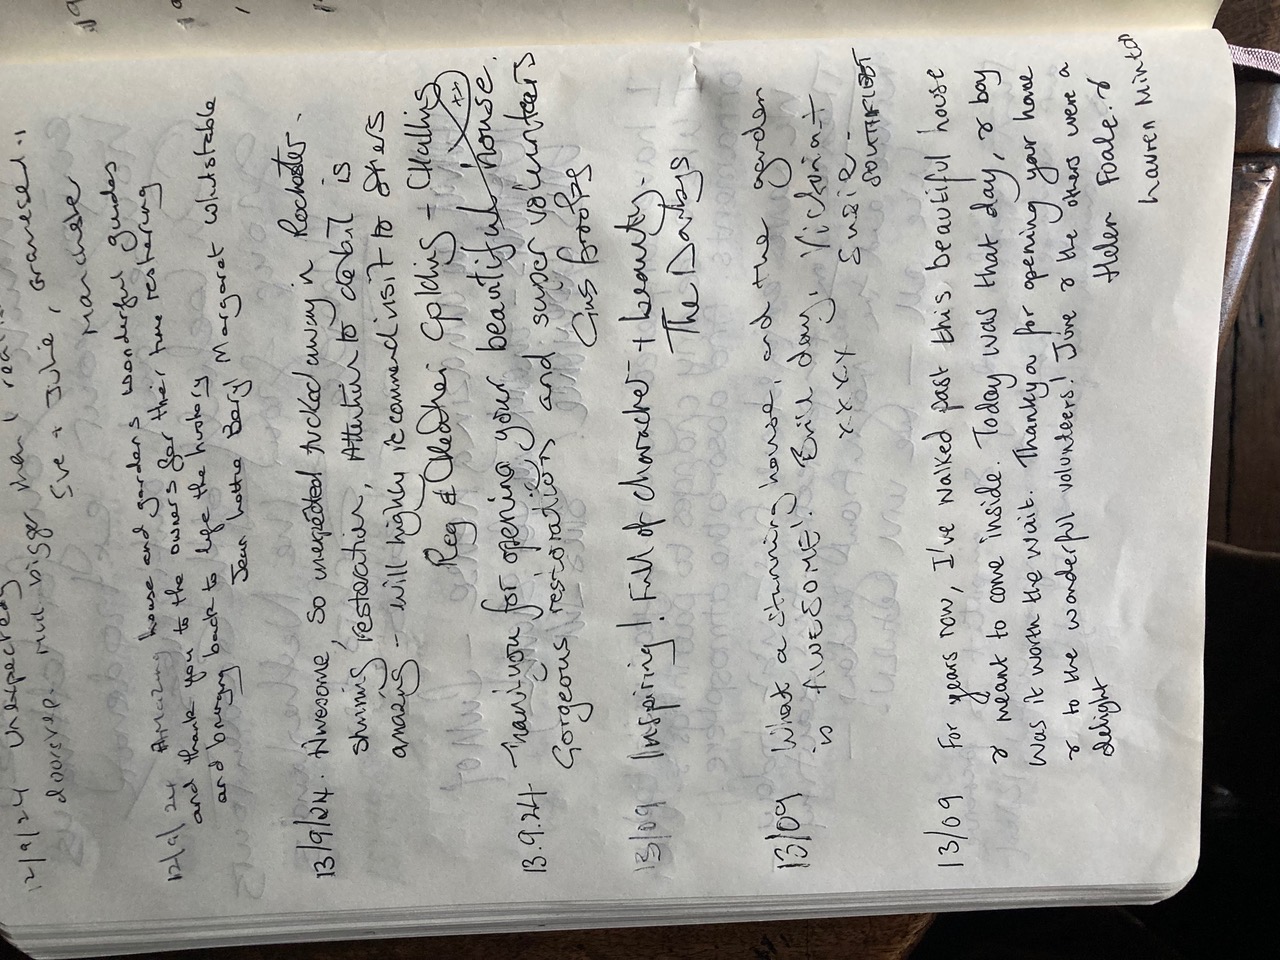 12/9/24 - Unexpected
doorstep. Much bigger than I
Sue + Julie, Gravesend
Manchester
12/9/24 Amazing house and gardens wonderful guides
and thank you to the owners for their time resthering
and bringing back to life the history
Jean Beryl Margaret Whitstable
13/9/24. Awesome, so unexpected tucked away in Rochester.
restoration, Attention to detail is
amazing - will highly recommend visit to others
Reg & Heather -
13.9.24 Thankyou for opening your beautiful house.
Gorgeous restoration, and super volunteers
13/09 Inspiring! Full of character + beauty.
The Darbys
13/09 What a stunning house, and the garden
is AWESOME!! Brill day, Victoria +
x.x.x.x Susie -
SOUTHFLEET
13/09 For years now, I've walked past this beautiful house
& meant to come inside. Today was that day, & boy
was it worth the wait. Thankyou for opening your home
& to the wonderful volunteers! June & the others were a
delight Helen Foale. &
Lauren Minton